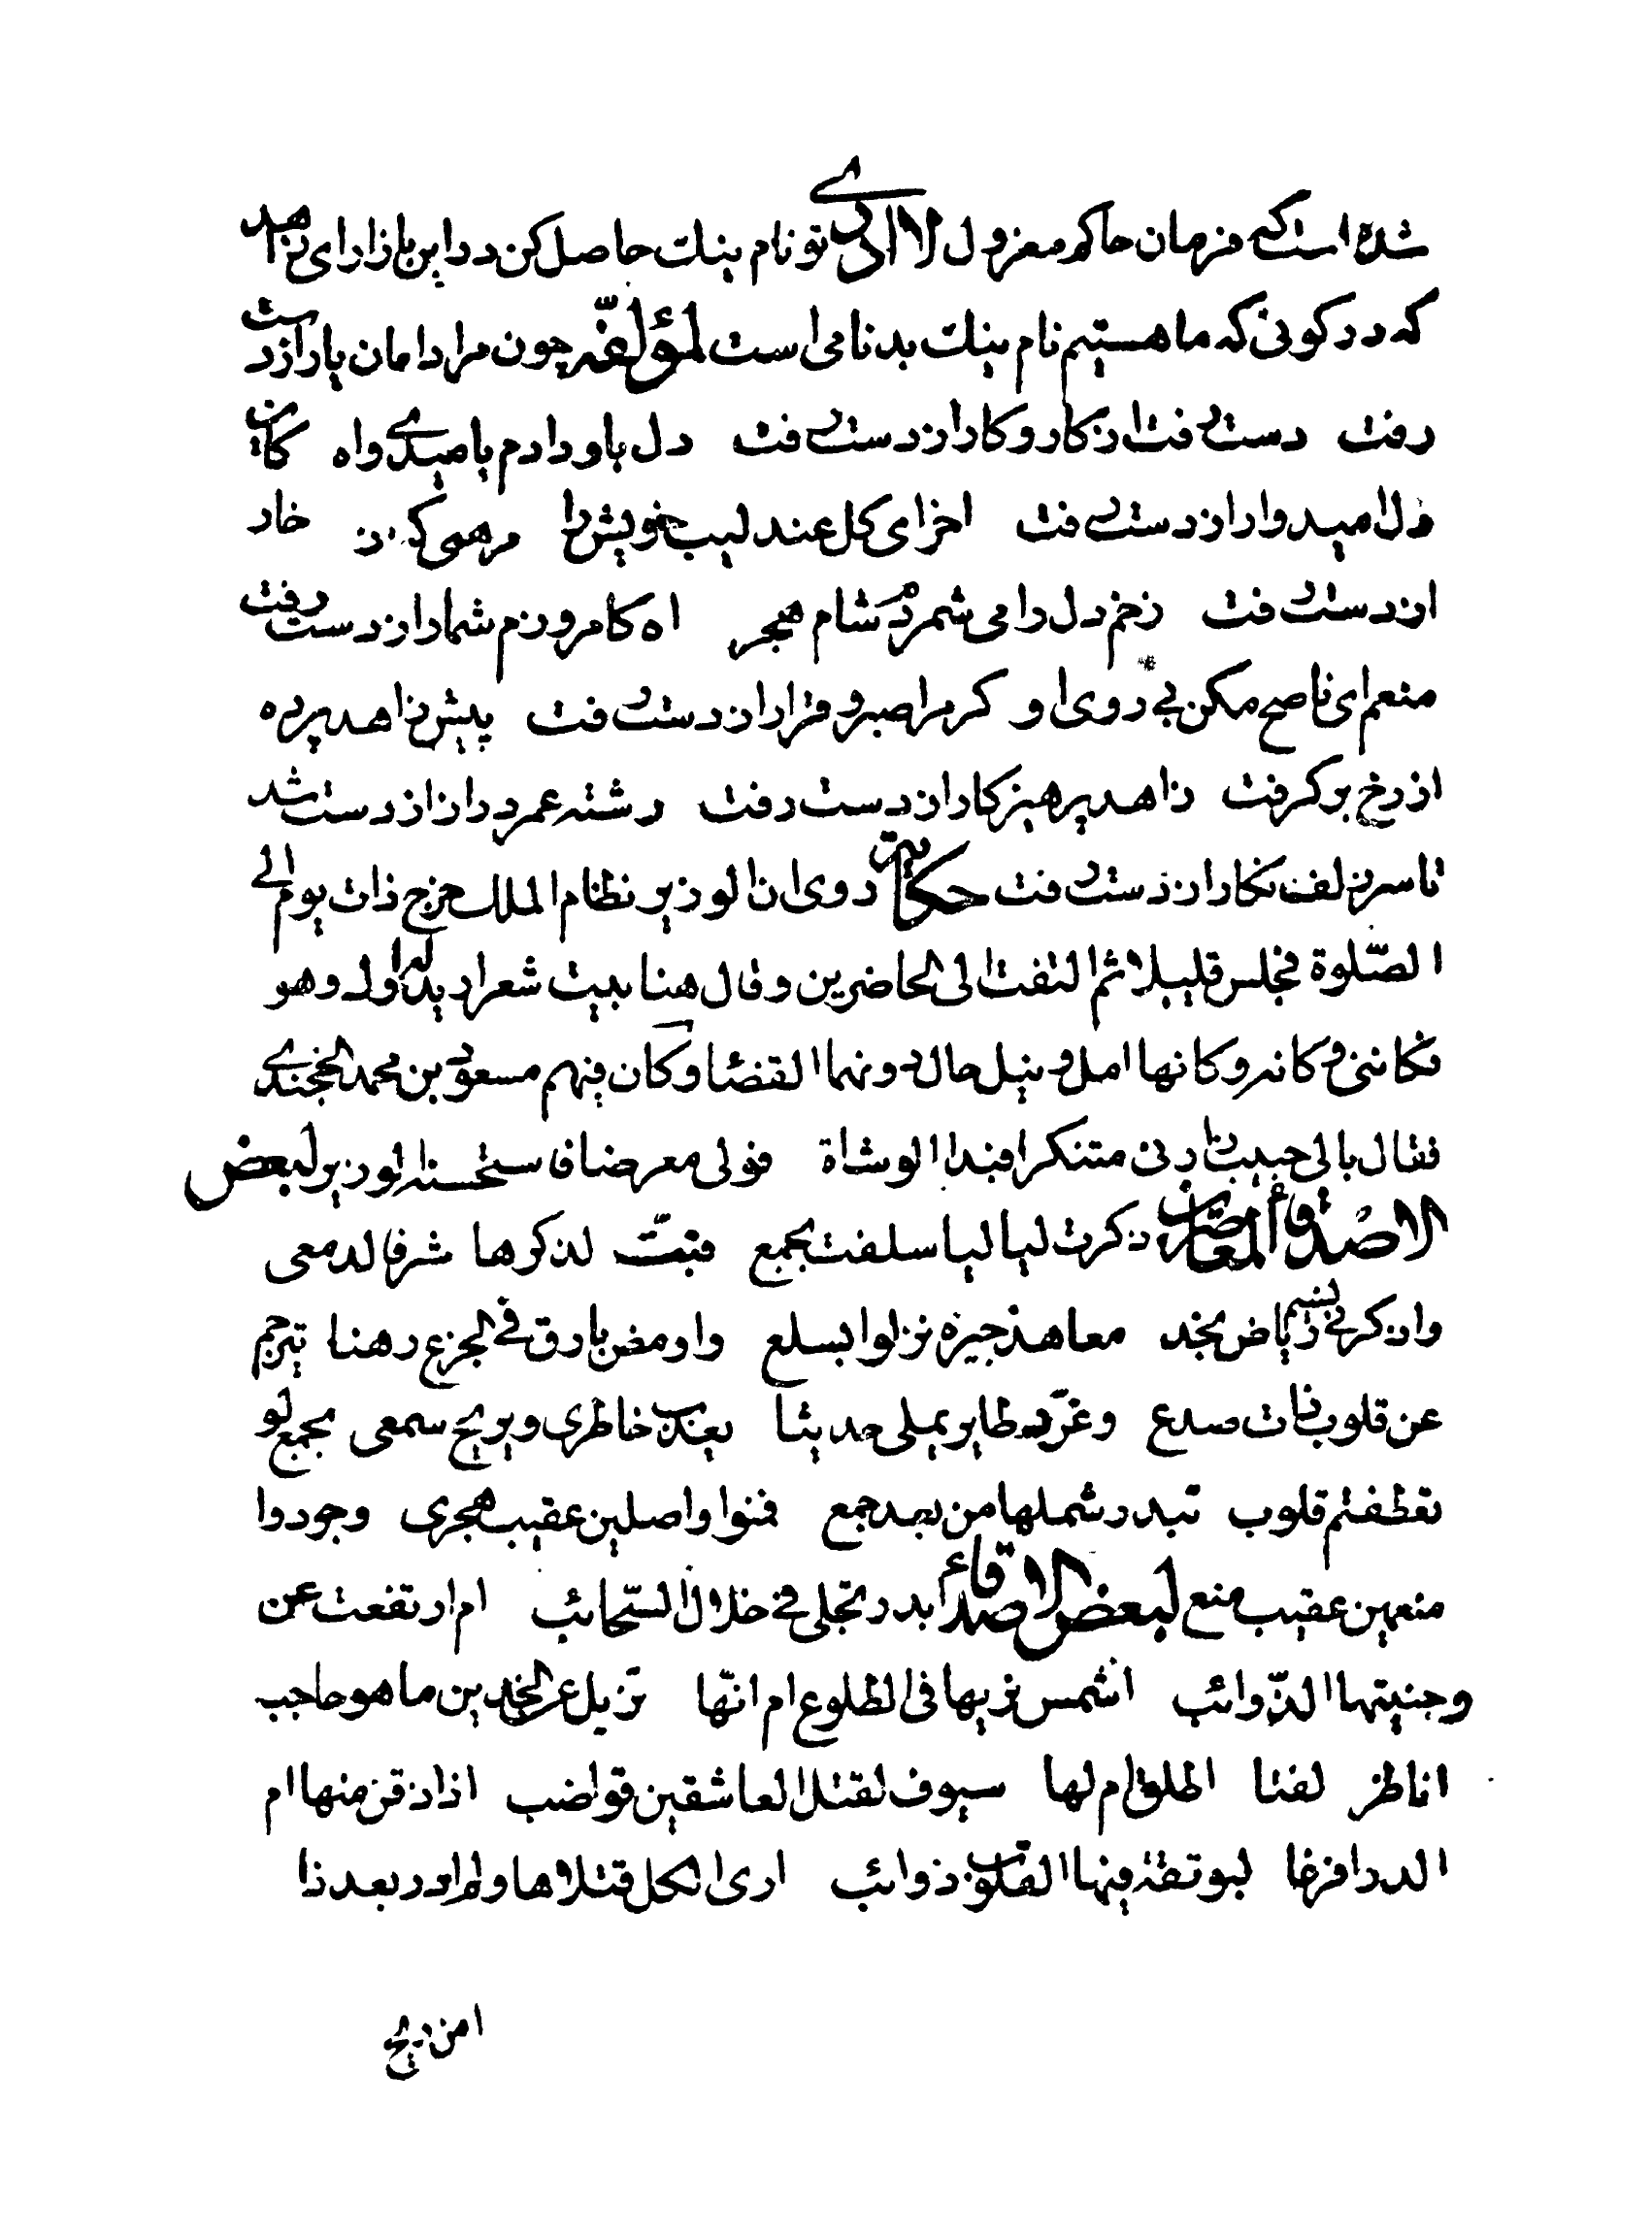 شده است که فرمان حاکم معزول لا ادری تو نام نیک حاصل کن در این بازار ای زاهد
که در کوئی که ما هستیم نام نیک بدنامی است لمؤلفه چون مرا دامان یار از دست
رفت دست رفت از کار و کار از دست رفت دل باو دادم بامیدی واه کان
دل امیدوار از دست رفت اخر ای کل عندلیب خویش را مرهمی خار
از دست رفت زخم دل را می شمردم شام هجر اه کامروزم شمار از دست رفت
منعم ای ناصح مکن بی روی او کر مرا صبر و قرار از دست رفت پیش زاهد پرده
از رخ بر کرفت زاهد پرهیزکار از دست رفت رشته عمر دراز از دست شد
تا سر زلف نکار از دست رفت حکایت روی ان الوزیر نظام الملک خرج ذات یوم الی
الصّلوة فجلس قلیلا ثم التفت الی الحاضرین وقال هنا بیت شعر ارید له اول وهو
فکاننی وکانه وکانها امل ونیل حال دونهما القضا وکان فیهم مسعود بن محمد الخجندی
فقال بالی حبیب زارنی متنکرا فبدا الوشاة فولی معرضا فاستحسنه الوزیر لبعض
الاصدقاء المعاصرین ذکرت لیالیا سلفت بجمع فبتّ لذکرها شرقا لدمعی
واذکرنی نسیم ریاض نجد معاهد جیرة نزلوا بسلع واومض بارق فی الجزع رهنا یترجم
عن قلوب ذات صدع وغرّد طایر یملی حدیثا یعذب خاطری ویریح سمعی بجمع لو
تعطفتم قلوب تبدد شملها من بعد جمع فمنوا واصلین عقیب هجری وجودوا
منعمین عقیب منع لبعض الاصدقاء ابدر تجلی فی خلال السّحائب ام ارتفعت عن
وجنیتها الذّوائب اشمس نریها فی الطلوع ام انّها تزیل عن الخدین ما هو حاجب
اناظر لفتا الطلق ام لها سیوف لقتل العاشقین قواضب اذا ذقن منها ام
الدر افرغا لبوتقة فیها القلوب ذوائب اری الکل قتلاها ولم ادر بعد ذا
امن ریح